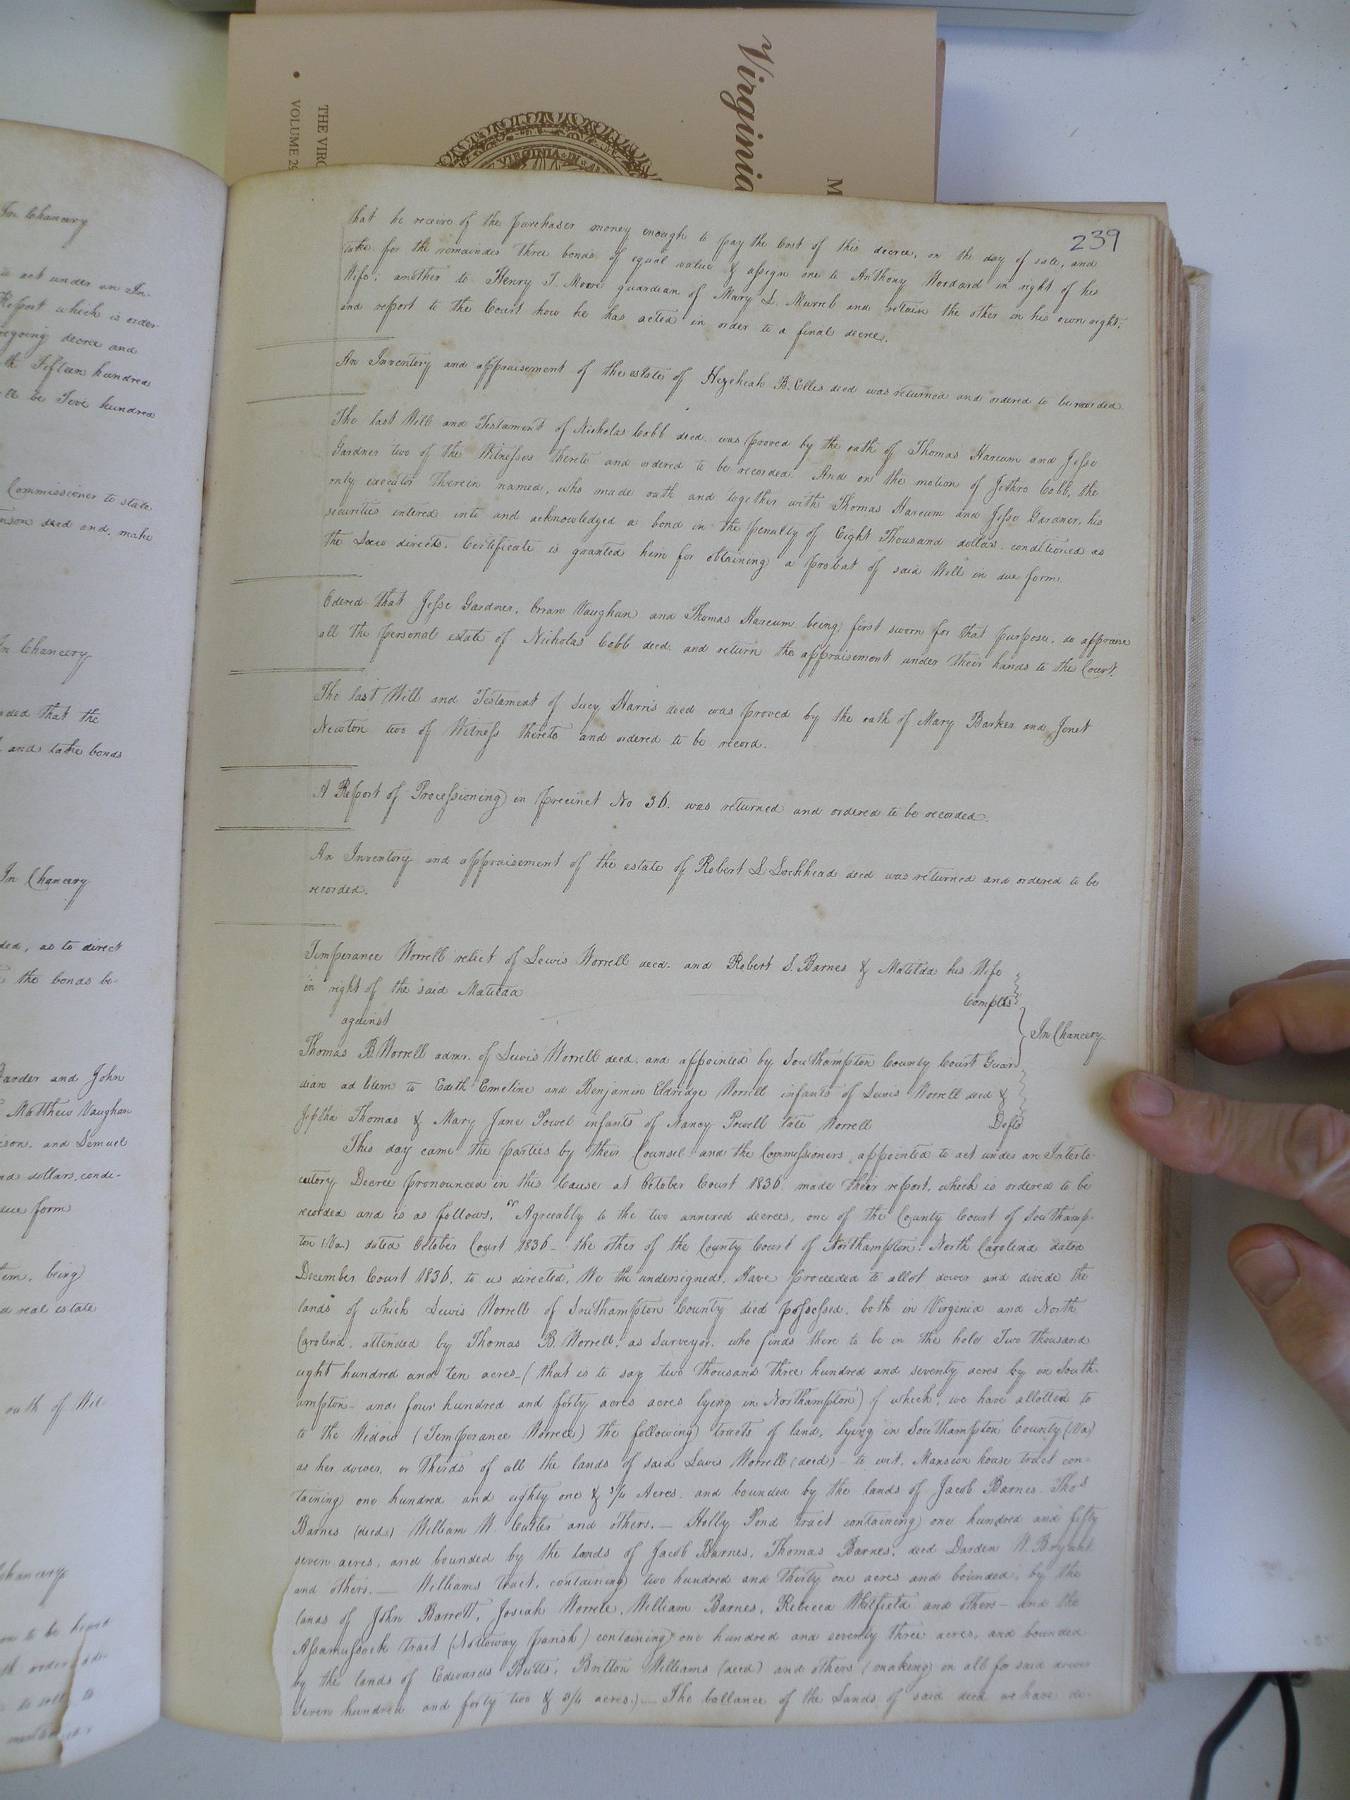 Virginia
M
THE VIRG
VOLUME 29
VIRGINIA
239
In Chancery
to act under an In-
Report which is order
regoing decree and
Fifteen hundred
be Five hundred
Commissioner to state
decd and make
In Chancery
that the
and take bonds
In Chancery
ded, as to direct
the bonds be-
Harder and John
Matthew Vaughan
ison, and Lemuel
dollars, condi-
due form
being
d real estate
oath of Wil-
Chancery
that he receive of the purchaser money enough to pay the Cost of this decree, on the day of sale, and
take for the remainder three bonds of equal value & assign one to Anthony Woodard in right of his
Wife; another to Henry T. Moore guardian of Mary L. Murrell and retain the other in his own right;
and report to the Court how he has acted in order to a final decree.
An Inventory and appraisement of the estate of Hezekiah B. Ellis decd was returned and ordered to be recorded
The last Will and Testament of Nicholas Cobb decd. was proved by the oath of Thomas Harcum and Jesse
Gardner two of the Witnesses thereto and ordered to be recorded. And on the motion of Jethro Cobb, the
only executor therein named, who made oath and together with Thomas Harcum and Jesse Gardner, his
securities entered into and acknowledged a bond in the penalty of Eight Thousand dollars conditioned as
the Law directs, Certificate is granted him for obtaining a probat of said Will in due form.
Odered that Jesse Gardner, Vaughan and Thomas Harcum being first sworn for that purpose, do appraise
all the personal estate of Nicholas Cobb decd. and return the appraisement under their hands to the Court.
The last Will and Testament of Lucy Harris decd was proved by the oath of Mary Barker and Jonet
Newton two of Witness thereto and ordered to be record.
A Report of Processioning in precinct No 36. was returned and ordered to be recorded.
An Inventory and appraisement of the estate of Robert L Lockhead decd was returned and ordered to be
recorded.
Temperance Worrell relict of Lewis Worrell decd. and Robert S. Barnes & Matilda his Wife
in right of the said Matilda
Complts
against
In Chancery
Thomas B. Worrell admr. of Lewis Worrell decd. and appointed by Southampton County Court Guar
dian ad litem to Edith Emeline and Benjamin Eldridge Worrell infants of Lewis Worrell decd &
Jeptha Thomas & Mary Jane Powel infants of Nancy Powell late Worrell
Defts
This day came the parties by their Counsel and the Commissioners appointed to act under an Interlo-
cutory Decree pronounced in this Cause at October Court 1836 made their report, which is ordered to be
recorded and is as follows, "Agreeably to the two annexed decrees, one of the County Court of Southamp-
ton (Va.) dated October Court 1836 - the other of the County Court of Northampton: North Carolina dated
December Court 1836. to us directed, We the undersigned, Have proceeded to allot dower and divide the
lands of which Lewis Worrell of Southampton County died possessed, both in Virginia and North
Carolina, attended by Thomas B. Worrell, as Surveyor, who finds there to be in the hole Two thousand
eight hundred and ten acres - (that is to say two thousand three hundred and seventy acres by in South-
ampton - and four hundred and forty acres acres lying in Northampton) of which, we have allotted to
to the Widow (Temperance Worrell) the following tracts of land, lying in Southampton County (Va)
as her dower, or thirds of all the lands of said Lewis Worrell (decd) - to wit. Mansion house tract con-
taining one hundred and eighty one & 3/4 Acres. and bounded by the lands of Jacob Barnes. Thos
Barnes (decd) William W. Cutler and others. - Holly Pond tract containing one hundred and fifty
seven acres, and bounded by the lands of Jacob Barnes, Thomas Barnes, decd Darden W. Bryant
and others. - Williams tract, containing two hundred and thirty one acres and bounded, by the
lands of John Barrett, Josiah Worrell, William Barnes, Rebecca Whitfield and others - and the
Assamussock tract (Nottoway parish) containing one hundred and seventy three acres, and bounded
by the lands of Edwards Butts, Britton Williams (decd) and others (making in all for said dower
Seven hundred and forty two & 3/4 acres.) - The ballance of the Lands of said decd we have de-